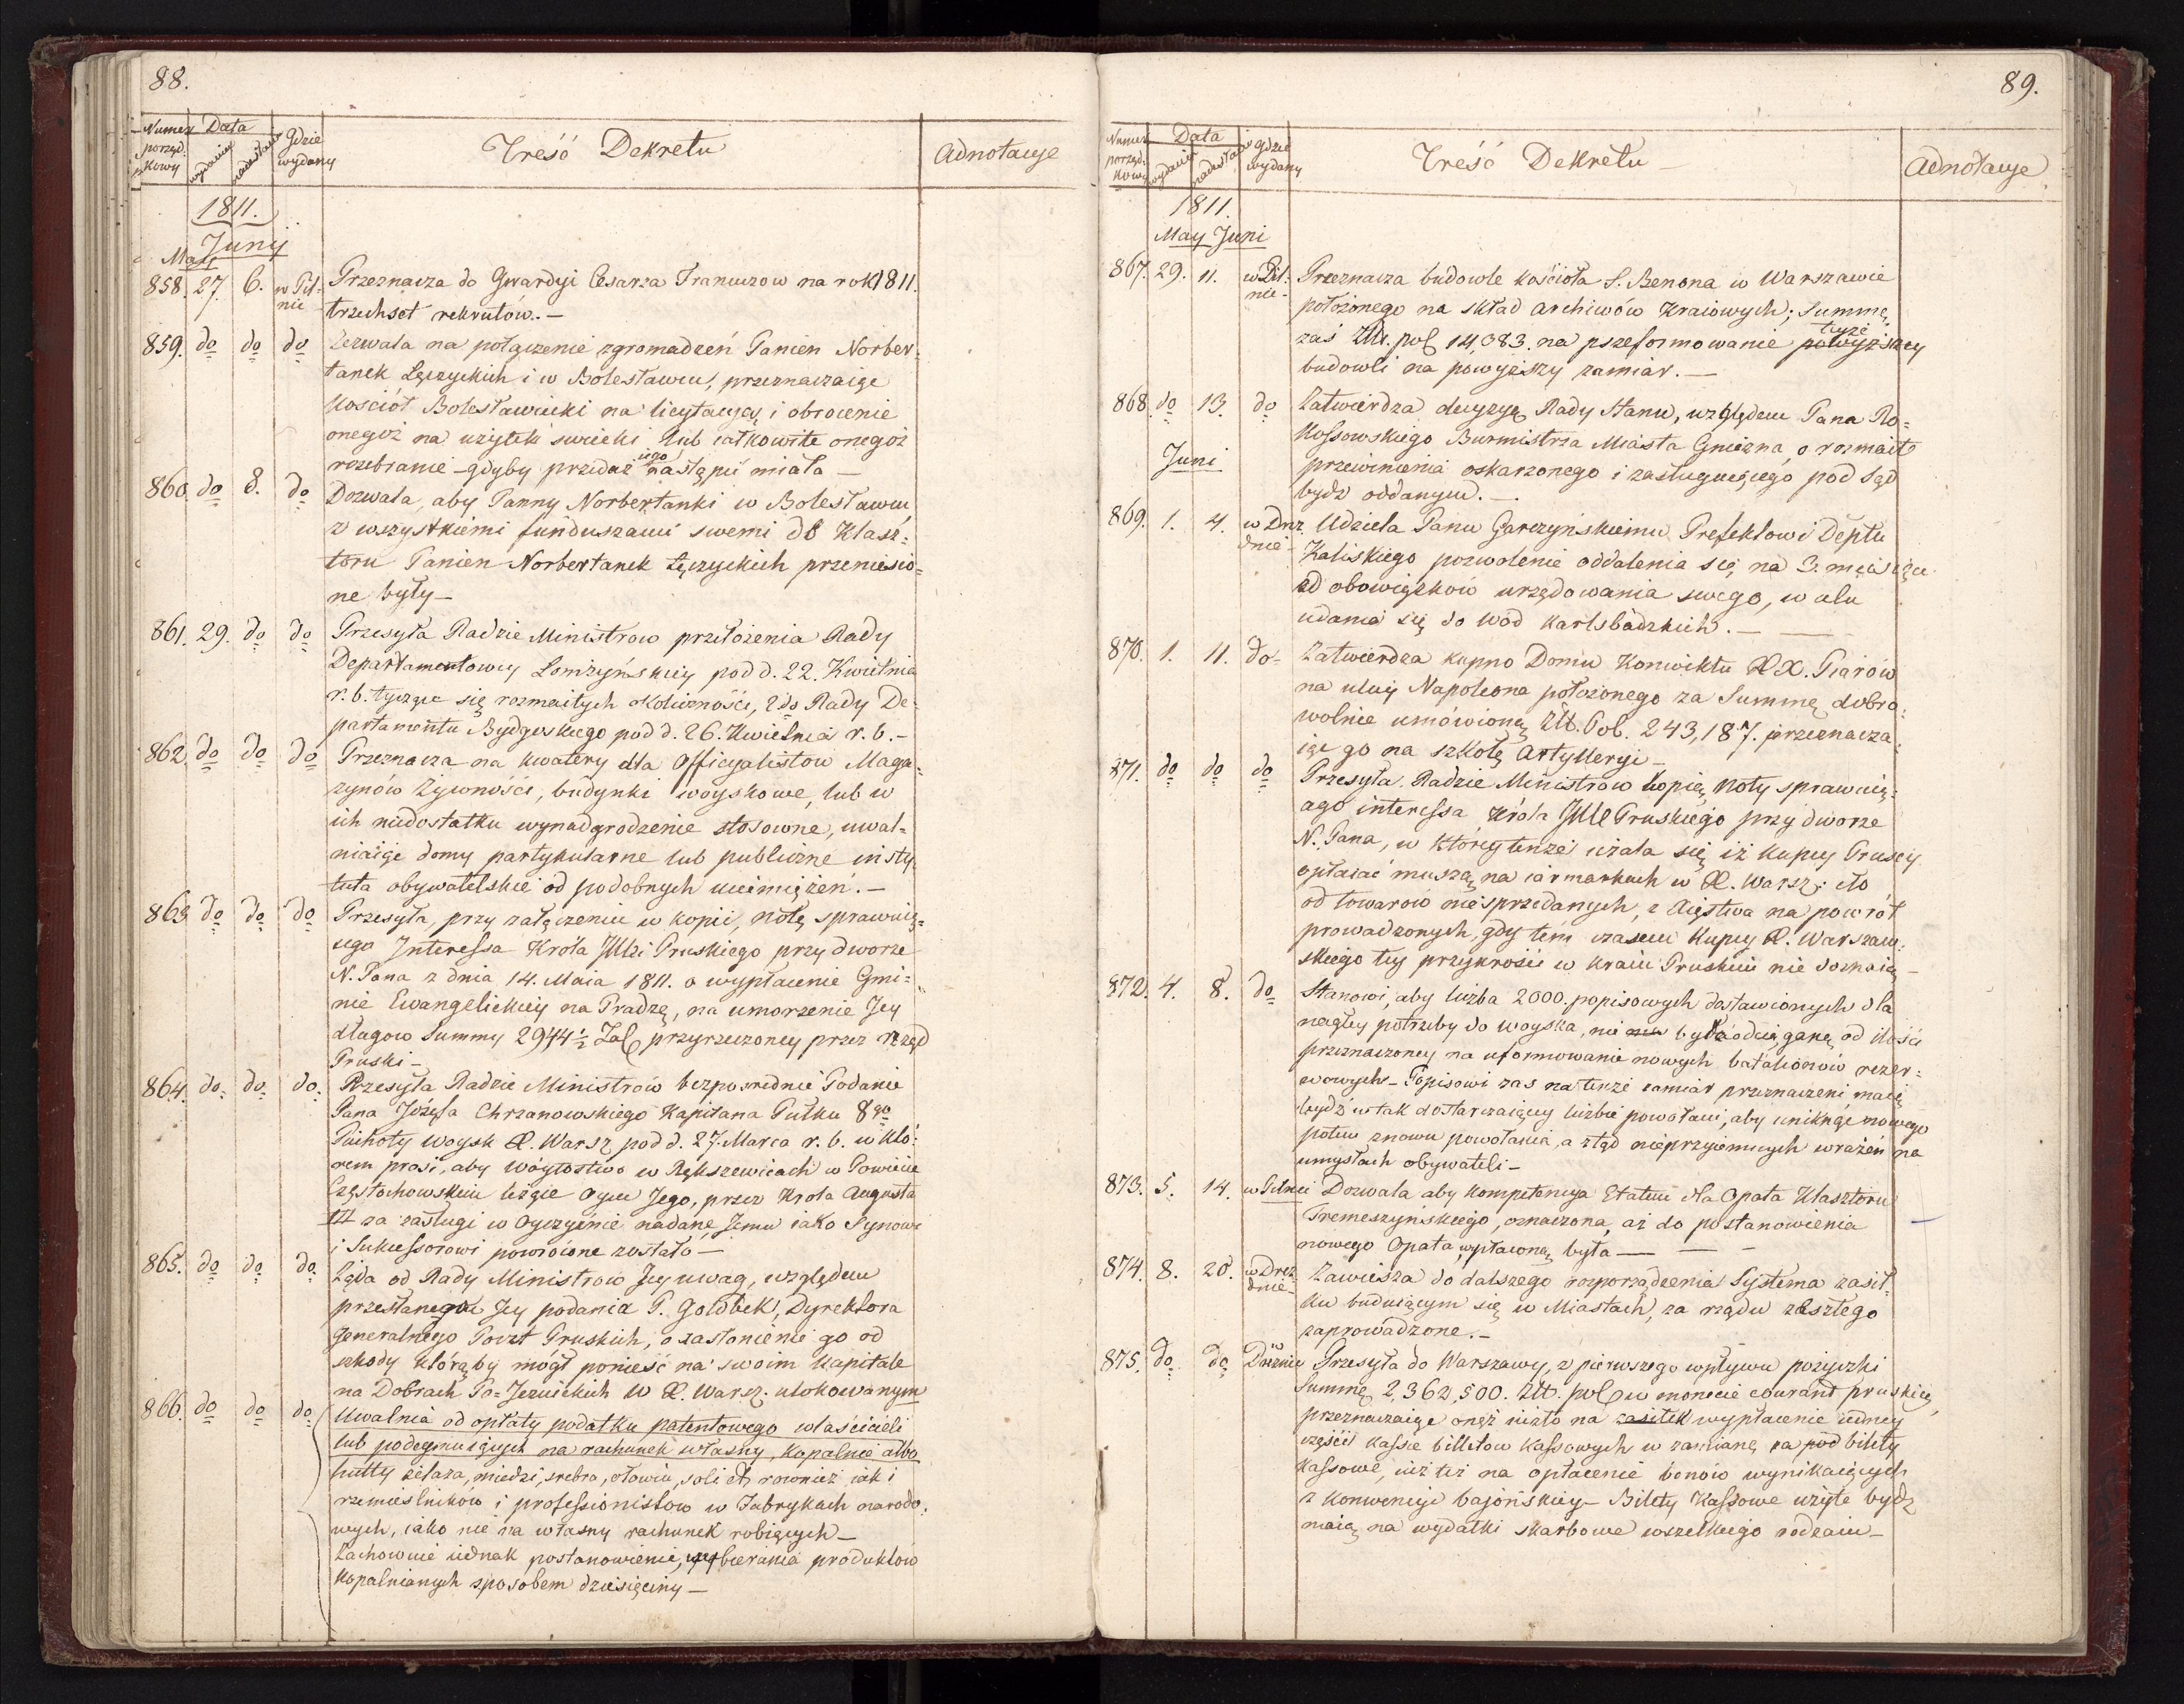 88.
Numer porząd. kowy
Data
wydania
nadesłania
Gdzie wydany
Treść Dekretu
Adnotacye
1811.
May Junij
858. 27. 6. w Pil-nie Przeznacza do Gwardyi Cesarza Francuzow na rok 1811.
trzechset rekrutów. —
859. do do do Zezwala na połączenie zgromadzeń Panien Norber-
tanek Łęczyckich i w Bolesławcu, przeznaczaiąc
Kościół Bolesławiecki na licytacyą i obrocenie
onegoż na użytek swiecki lub całkowite onegoż
rozebranie – gdyby przedaż iego nastąpić miała —
860. do 8. do Dozwala, aby Panny Norbertanki w Bolesławcu
z wszystkiemi funduszami swemi do Klasz-
toru Panien Norbertanek Łęczyckich przeniesio-
ne były —
861. 29. do do Przesyła Radzie Ministrow przełożenia Rady
Departamentowey Łomżyńskiey pod d. 22. Kwietnia
r. b. tyczące się rozmaitych okoliczności, 2do Rady De-
partamentu Bydgoskiego pod d. 26. Kwietnia r. b. –
862. do do do Przeznacza na kwatery dla Officyalistow Maga-
zynów Żywności, budynki woyskowe, lub w
ich niedostatku wynadgrodzenie stosowne, uwal-
niaiąc domy partykularne lub publiczne insty-
tuta obywatelskie od podobnych uciemiężeń. —
863 do do do Przesyła, przy załączeniu w kopii, notę sprawuią-
cego Interessa Króla JMci Pruskiego przy dworze
N. Pana z dnia 14. Maia 1811. o wypłacenie Gmi-
nie Ewangelickiey na Pradze, na umorzenie Jey
długow Summy 2944 ½ Tal. przyrzeczoney przez rząd
Pruski –
864. do. do. do. Przesyła Radzie Ministrów bezposrednie Podanie
Pana Józefa Chrzanowskiego Kapitana Pułku 8go
Piechoty Woysk X. Warsz. pod d. 27. Marca r. b. w któ-
rem prosi, aby Wóytostwo w Rększewicach w Powiecie
Częstochowskim leżące Oycu Jego, przez Krola Augusta
III za zasługi w Oyczyznie nadane, Jemu iako Synowi
i Sukcessorowi powrócone zostało —
865. do do do. Żąda od Rady Ministrow Jey uwag, względem
przesłanego Jey podania P. Goldbek, Dyrektora
Generalnego Poczt Pruskich, o zasłonienie go od
szkody którąby mógł ponieść na swoim Kapitale
na Dobrach Po-Jezuickich w X. Warsz. ulokowanym
866. do do do. Uwalnia od opłaty podatku patentowego właścicieli
lub podeymuiących na rachunek własny, kopalnie albo
hutty żelaza, miedzi, srebra, ołowiu, soli etc, rownież iak i
rzemieślników i professionistow w Fabrykach narodo-
wych, iako nie na własny rachunek robiących —
Zachowuie iednak postanowienie, wybierania produktów
kopalnianych sposobem dziesięciny —
89.
Numer porząd. kowy
Data
wydania
nadesłania
gdzie wydany
Treść Dekretu
Adnotacye
1811.
May Juni
867. 29. 11. w Pil-nie Przeznacza budowle kościoła S. Benona w Warszawie
położonego na skład Archiwów Kraiowych; Summę
zaś Złt. pol. 14,383. na przeformowanie powyższey teyże
budowli na powyższy zamiar. —
868. do 13. do Zatwierdza decyzyą Rady Stanu, względem Pana Ro-
kossowskiego Burmistrza Miasta Gniezna, o rozmaite
Juni
przewinienia oskarzonego i zasługuiącego pod Sąd
bydź oddanym. —
869. 1. 4. w Drez-dnie Udziela Panu Garczyńskiemu Prefektowi Deptu
Kaliskiego pozwolenie oddalenia się na 3. miesiące
od obowiązków urzędowania swego, w celu
udania się do Wód Karlsbadzkich. —
870. 1. 11. do Zatwierdza kupno Domu Konwiktu XX. Piarów
na ulicy Napoleona położonego za Summę dobro-
wolnie umówioną Złt. Pol. 243,187. przeznacza-
iąc go na szkołę Artylleryi —
871. do do do Przesyła Radzie Ministrow kopię noty sprawuią-
cego interessa Króla JMci Pruskiego przy dworze
N. Pana, w którey tenże użala się iż Kupcy Pruscy
opłacać muszą na iarmarkach w X. Warsz: cło
od towarów niesprzedanych, z Xięstwa na powrót
prowadzonych, gdy tem czasem Kupcy X. Warszaw-
skiego tey przykrości w kraiu Pruskim nie doznaią —
872. 4. 8. do Stanowi, aby liczba 2000. popisowych dostawionych dla
nagłey potrzeby do woyska, nie była odciąganą od ilości
przeznaczoney na uformowanie nowych batalionów rezer-
wowych – Popisowi zas na tenże zamiar przeznaczeni maią
bydź w tak dostarczaiącey liczbie powołani, aby uniknąć nowego
potem znowu powołania, a ztąd nieprzyiemnych wrażeń na
umysłach obywateli –
873. 5. 14. w Pilnie Dozwala aby kompetencya Etatem dla Opata Klasztoru
Tremeszyńskiego, oznaczona, aż do postanowienia
nowego Opata, wypłaconą była —
874. 8. 20. w Drez-dnie Zawiesza do dalszego rozporządzenia Systema zasił-
ku buduiącym się w Miastach, za rządu zeszłego
zaprowadzone. —
875. do do w Dreznie Przesyła do Warszawy, z pierwszego wpływu pożyczki
Summę 2,362,500. Złt. pol. w monecie courant pruskiey,
przeznaczaiąc onęż iużto na zasiłek wypłacenie iedney
części Kassie billetow Kassowych w zamianę za pod bilety
Kassowe, iuż też na opłacenie bonów wynikaiących
z konwencyi bajońskiey – Bilety Kassowe użyte bydź
maią na wydatki skarbowe wszelkiego rodzaiu —